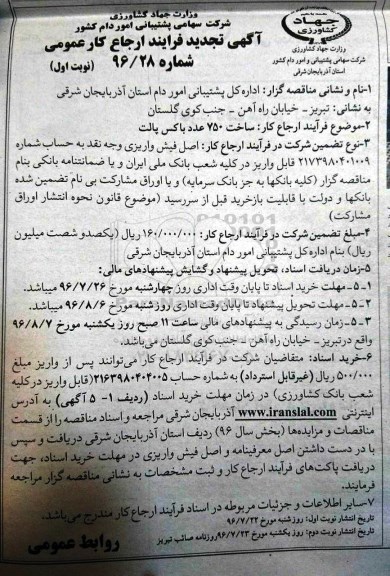 وزارت جهاد کشاورزی
شرکت سهامی پشتیبانی امور دام کشور
آگهی تجدید فرایند ارجاع کار عمومی
شماره ۹۶/۲۸ (نوبت اول)
جهاد
کشاورزی
وزارت جهاد کشاورزی
شرکت سهامی پشتیبانی و امور دام کشور
استان آذربایجان شرقی
۱-نام و نشانی مناقصه گزار: اداره کل پشتیبانی امور دام استان آذربایجان شرقی
به نشانی: تبریز - خیابان راه آهن - جنب کوی گلستان
۲-موضوع فرآیند ارجاع کار: ساخت ۷۵۰ عدد باکس پالت
۳-نوع تضمین شرکت در فرآیند ارجاع کار: اصل فیش واریزی وجه نقد به حساب شماره
۲۱۷۳۹۸۰۴۰۱۰۰۹ قابل واریز در کلیه شعب بانک ملی ایران و یا ضمانتنامه بانکی بنام
مناقصه گزار (کلیه بانکها به جز بانک سرمایه) و یا اوراق مشارکت بی نام تضمین شده
بانکها و دولت با قابلیت بازخرید قبل از سررسید (موضوع قانون نحوه انتشار اوراق
مشارکت)
۴-مبلغ تضمین شرکت در فرآیند ارجاع کار: ۱۶۰/۰۰۰/۰۰۰ ریال (یکصدو شصت میلیون
ریال) بنام اداره کل پشتیبانی امور دام استان آذربایجان شرقی
۵-زمان دریافت اسناد، تحویل پیشنهاد و گشایش پیشنهادهای مالی:
۱-۵-مهلت خرید اسناد تا پایان وقت اداری روز چهارشنبه مورخ ۹۶/۷/۲۶ میباشد.
۲-۵-مهلت تحویل پیشنهاد تا پایان وقت اداری روز شنبه مورخ ۹۶/۸/۶ میباشد.
۳-۵-زمان رسیدگی به پیشنهادهای مالی ساعت ۱۱ صبح روز یکشنبه مورخ ۹۶/۸/۷
واقع درتبریز- خیابان راه آهن - جنب کوی گلستان می‌باشد.
۶-خرید اسناد: متقاضیان شرکت در فرآیند ارجاع کار می‌توانند پس از واریز مبلغ
۵۰۰/۰۰۰ ریال (غیرقابل استرداد) به شماره حساب ۲۱۶۳۹۸۰۴۰۴۰۰۵ (قابل واریز در کلیه
شعب بانک کشاورزی) در زمان مهلت خرید اسناد (ردیف ۱-۵ آگهی) به آدرس
اینترنتی www.iranslal.com آذربایجان شرقی مراجعه و اسناد مناقصه را از قسمت
مناقصات و مزایده‌ها (بخش سال ۹۶) ردیف استان آذربایجان شرقی دریافت و سپس
با در دست داشتن اصل معرفینامه و اصل فیش واریزی در مهلت خرید اسناد، جهت
دریافت پاکت‌های فرآیند ارجاع کار و ثبت مشخصات به نشانی مناقصه گزار مراجعه
فرمایند.
۷-سایر اطلاعات و جزئیات مربوطه در اسناد فرآیند ارجاع کار مندرج می‌باشد.
تاریخ انتشار نوبت اول: روز شنبه مورخ ۹۶/۷/۲۲
تاریخ انتشار نوبت دوم: روز یکشنبه مورخ ۹۶/۷/۲۳ روزنامه صائب تبریز
روابط عمومی